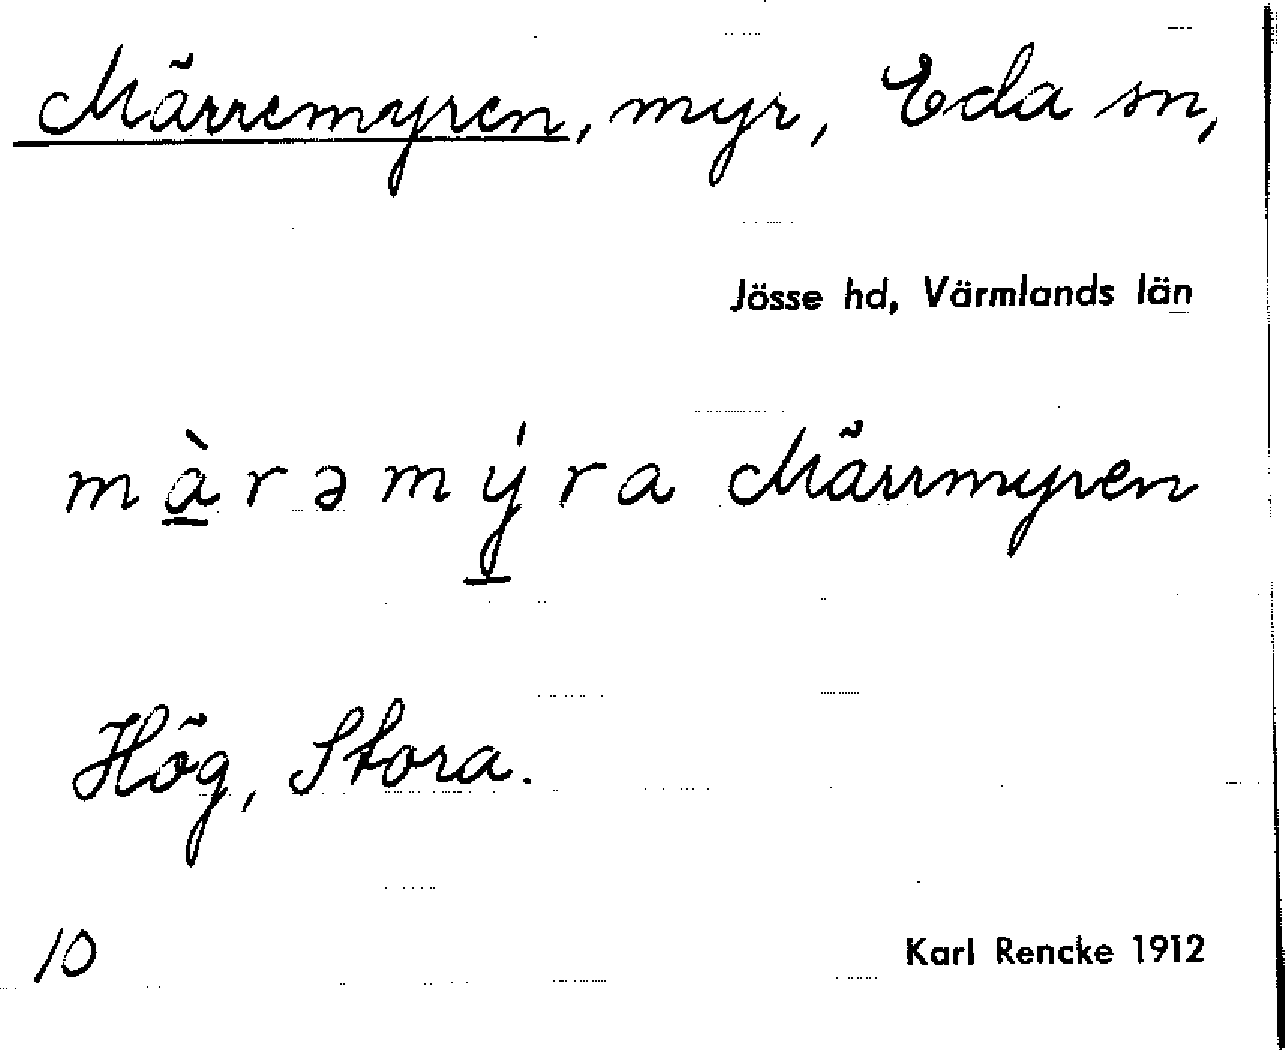 Märremyren, myr, Eda sn,
Jösse hd, Värmlands län
mà̠rəmý̠ra Märrmyren
Hög, Stora.
10
Karl Rencke 1912